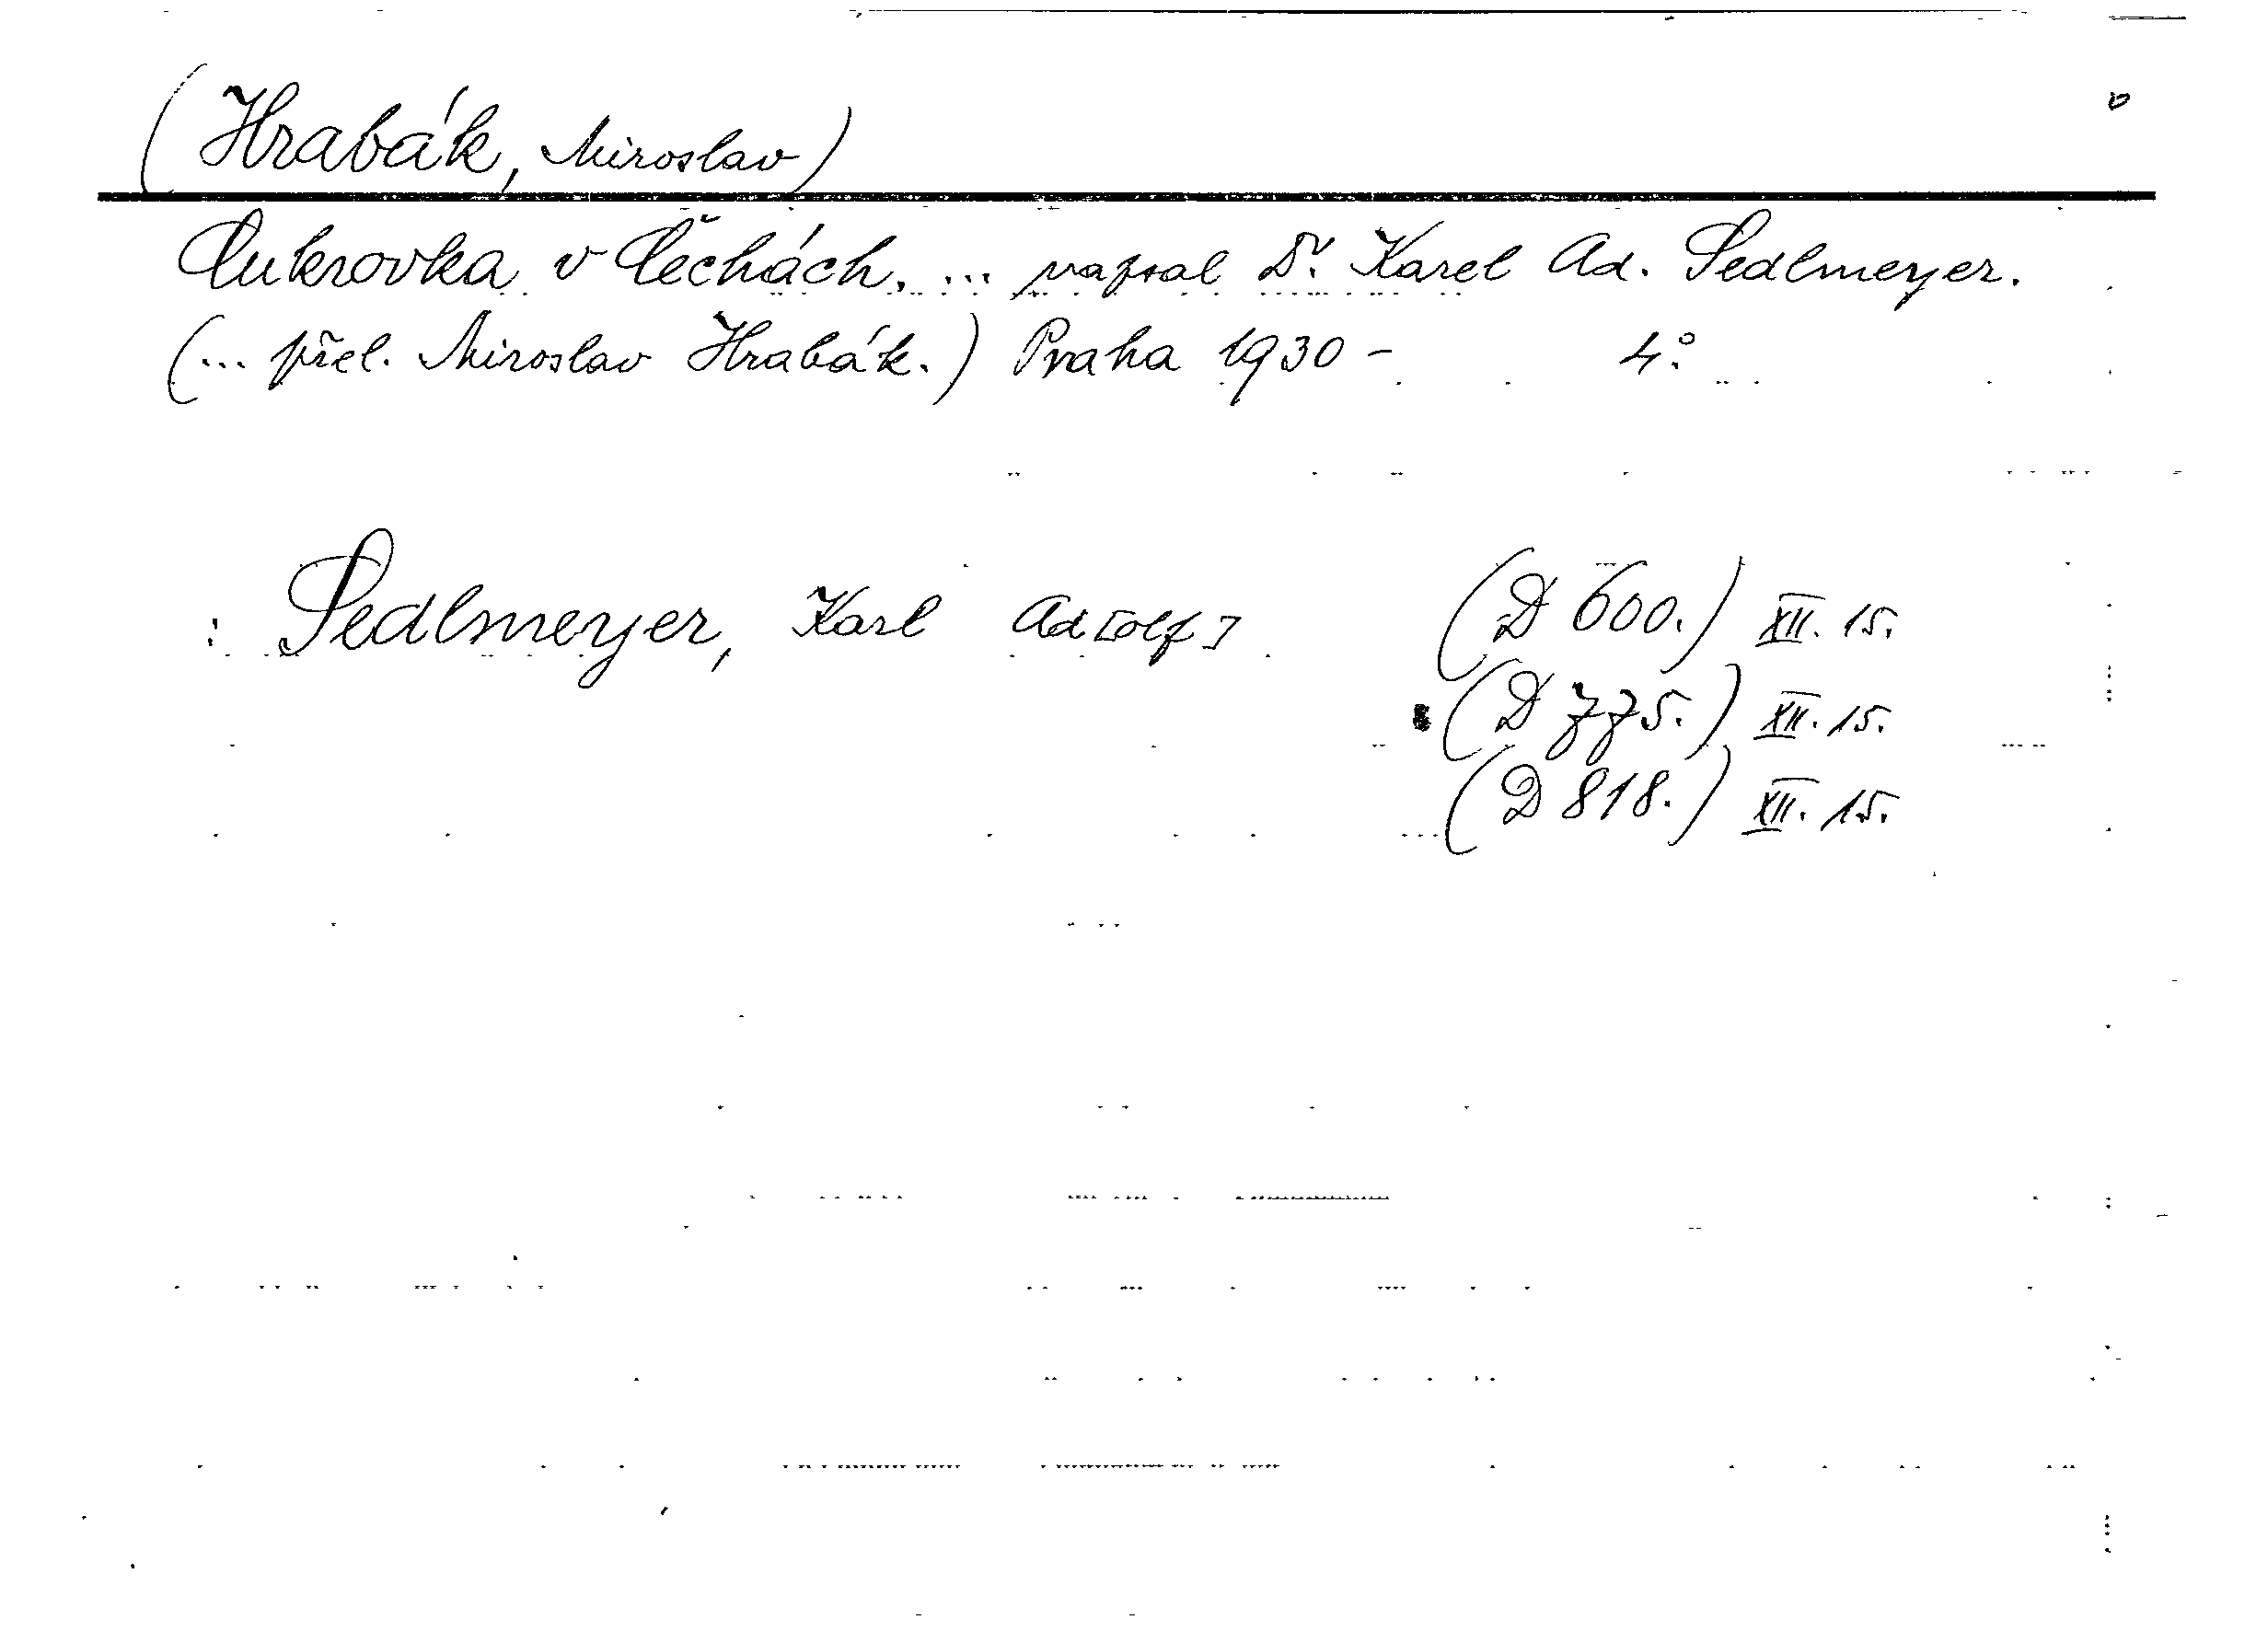 (Hrabák, Miroslav)
Cukrovka v Čechách. ... napsal Dr. Karel Ad. Sedlmeyer.
(... přel. Miroslav Hrabák.) Praha 1930 - 4°
: Sedlmeyer, Karl Ad[olf] (D 600.) XII. 15.
(D 775.) XII. 15.
(D 818.) XII. 15.